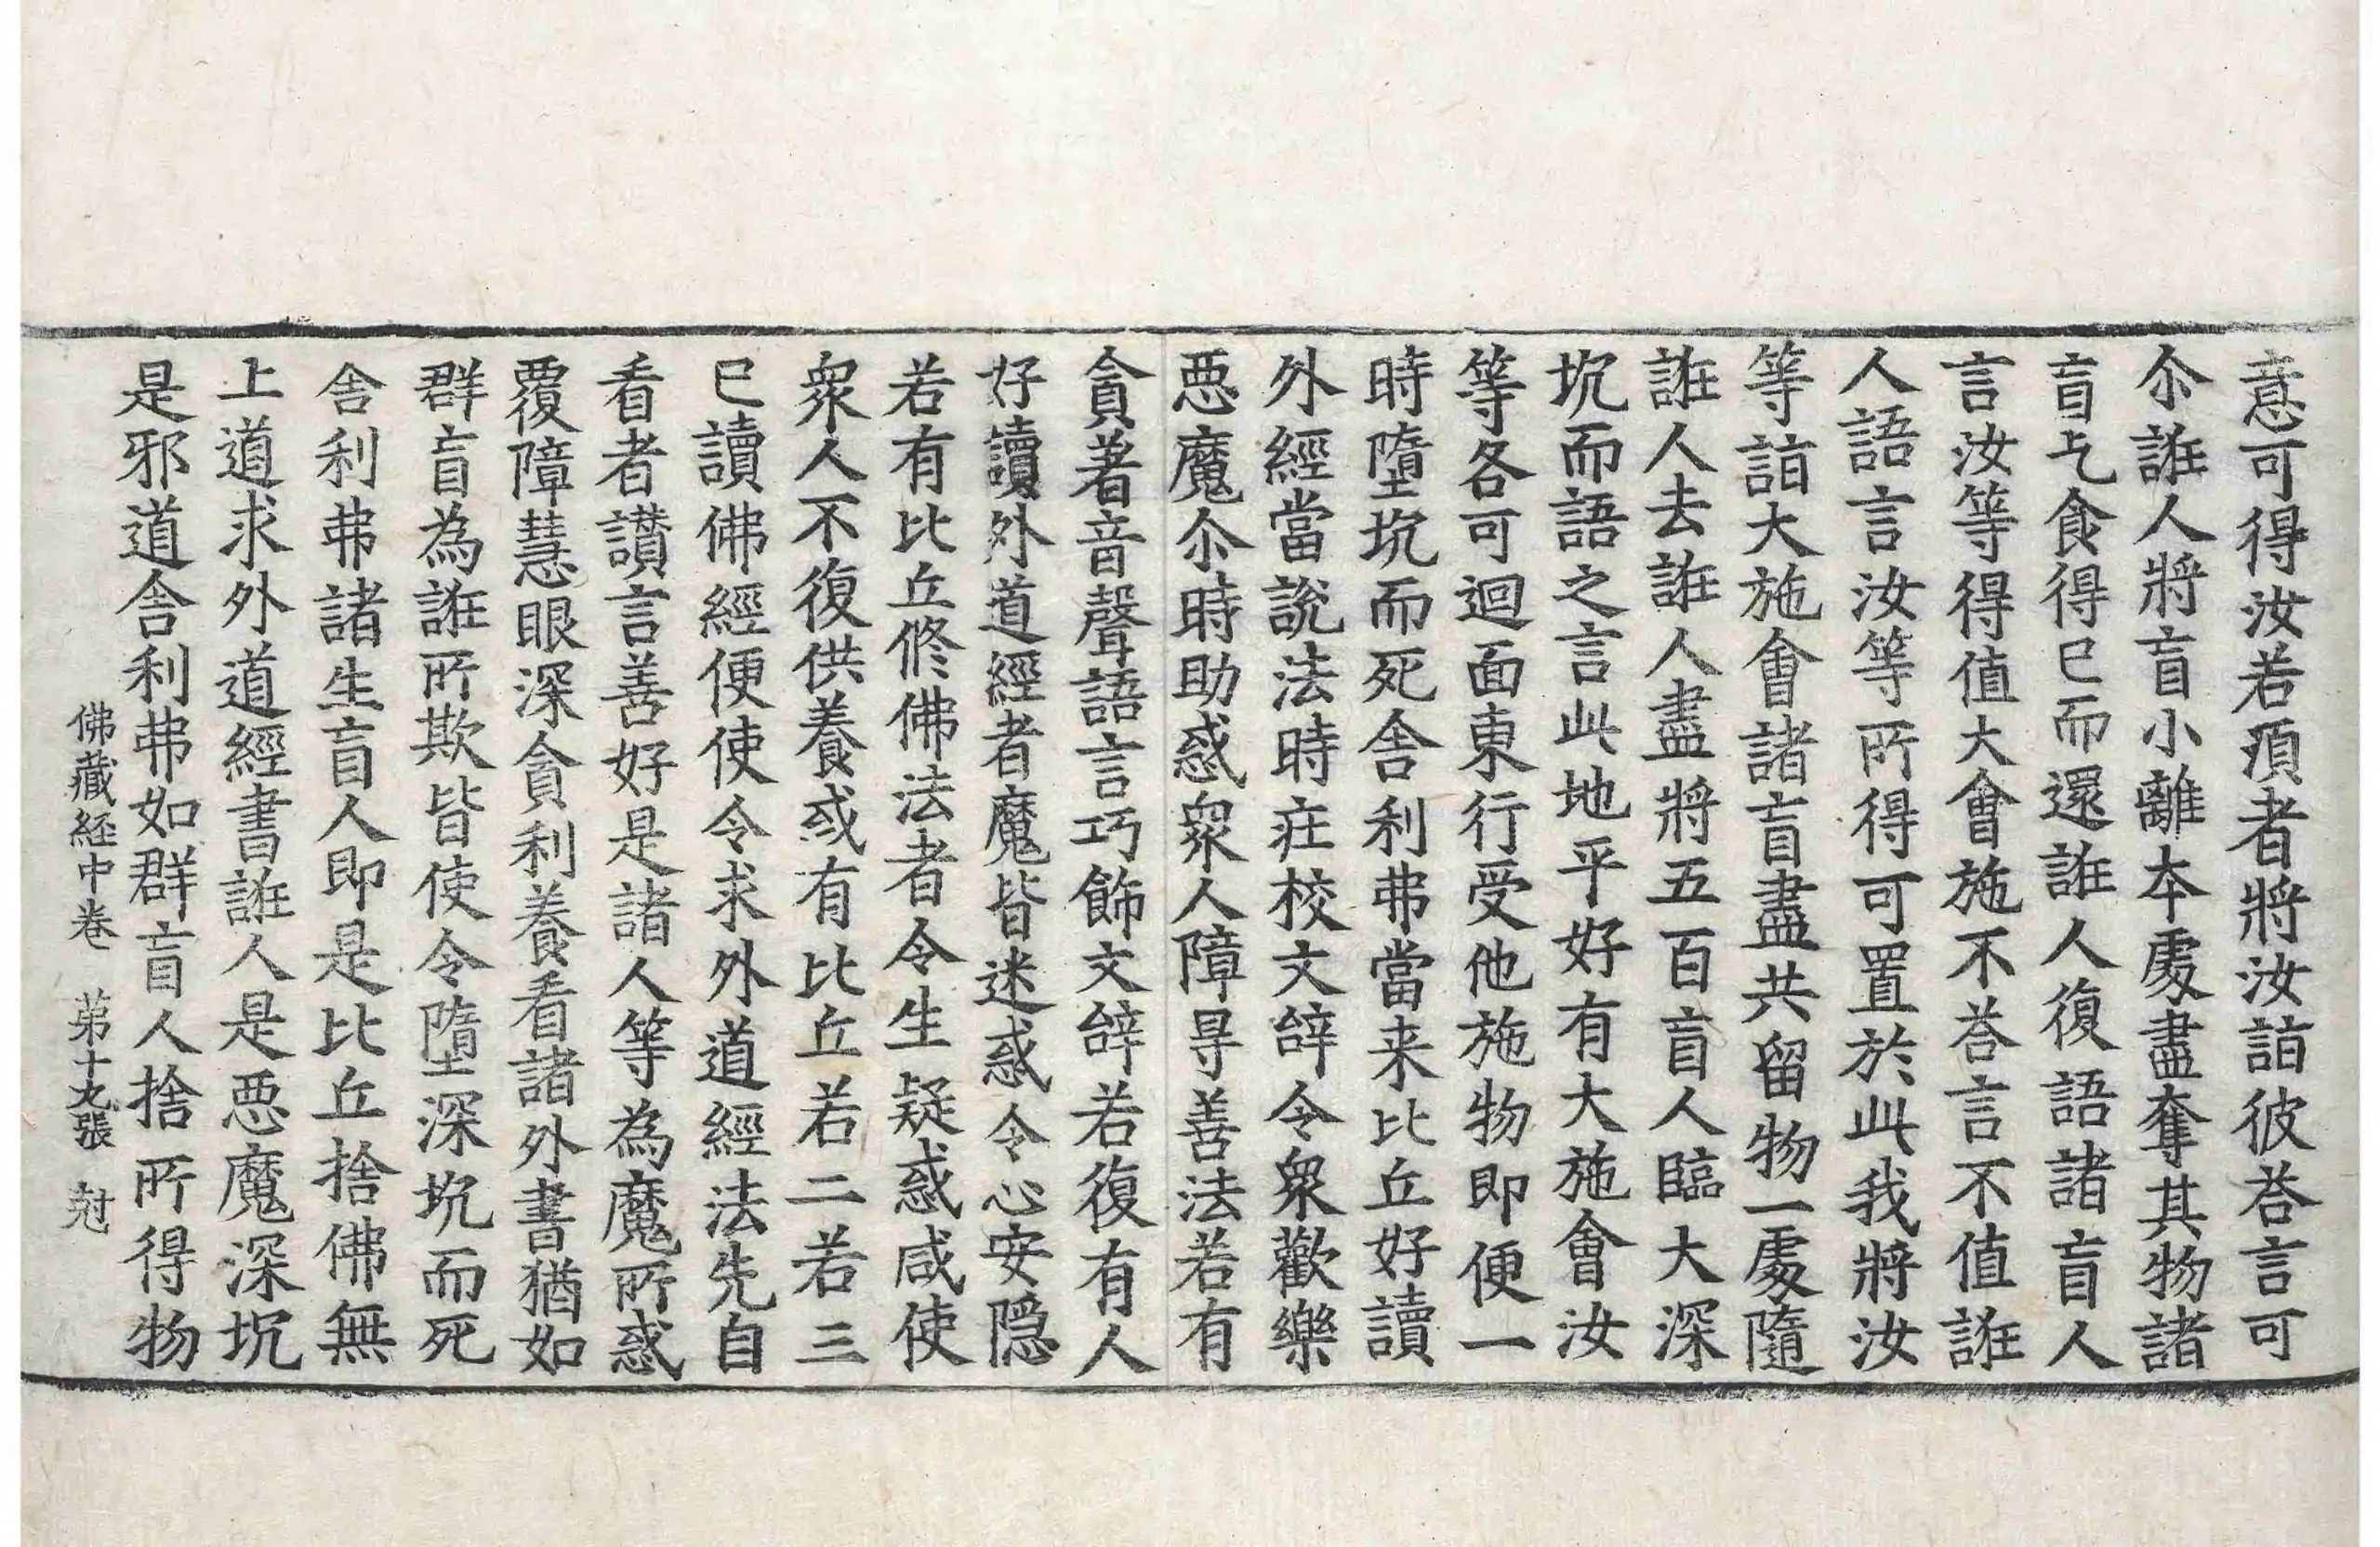 意可得汝若須者將汝詣彼荅言可
尒誑人將盲小離本處盡奪其物諸
盲乞食得已而還誑人復語諸盲人
言汝等得值大會施不荅言不值誑
人語言汝等所得可置於此我將汝
等詣大施會諸盲盡共留物一處隨
誑人去誑人盡將五百盲人臨大深
坑而語之言此地平好有大施會汝
等各可迴面東行受他施物即便一
時墮坑而死舍利弗當来比丘好讀
外經當說法時莊校文辝令衆歡樂
惡魔尒時助惑衆人障㝵善法若有
貪著音聲語言巧飾文辝若復有人
好讀外道經者魔皆迷惑令心安隱
若有比丘修佛法者令生疑惑咸使
衆人不復供養或有比丘若二若三
已讀佛經便使令求外道經法先自
看者讃言善好是諸人等為魔所惑
覆障慧眼深貪利養看諸外書猶如
群盲為誑所欺皆使令墮深坑而死
舍利弗諸生盲人即是比丘捨佛無
上道求外道經書誑人是惡魔深坑
是邪道舍利弗如群盲人捨所得物
佛藏経中卷 苐十九張 尅